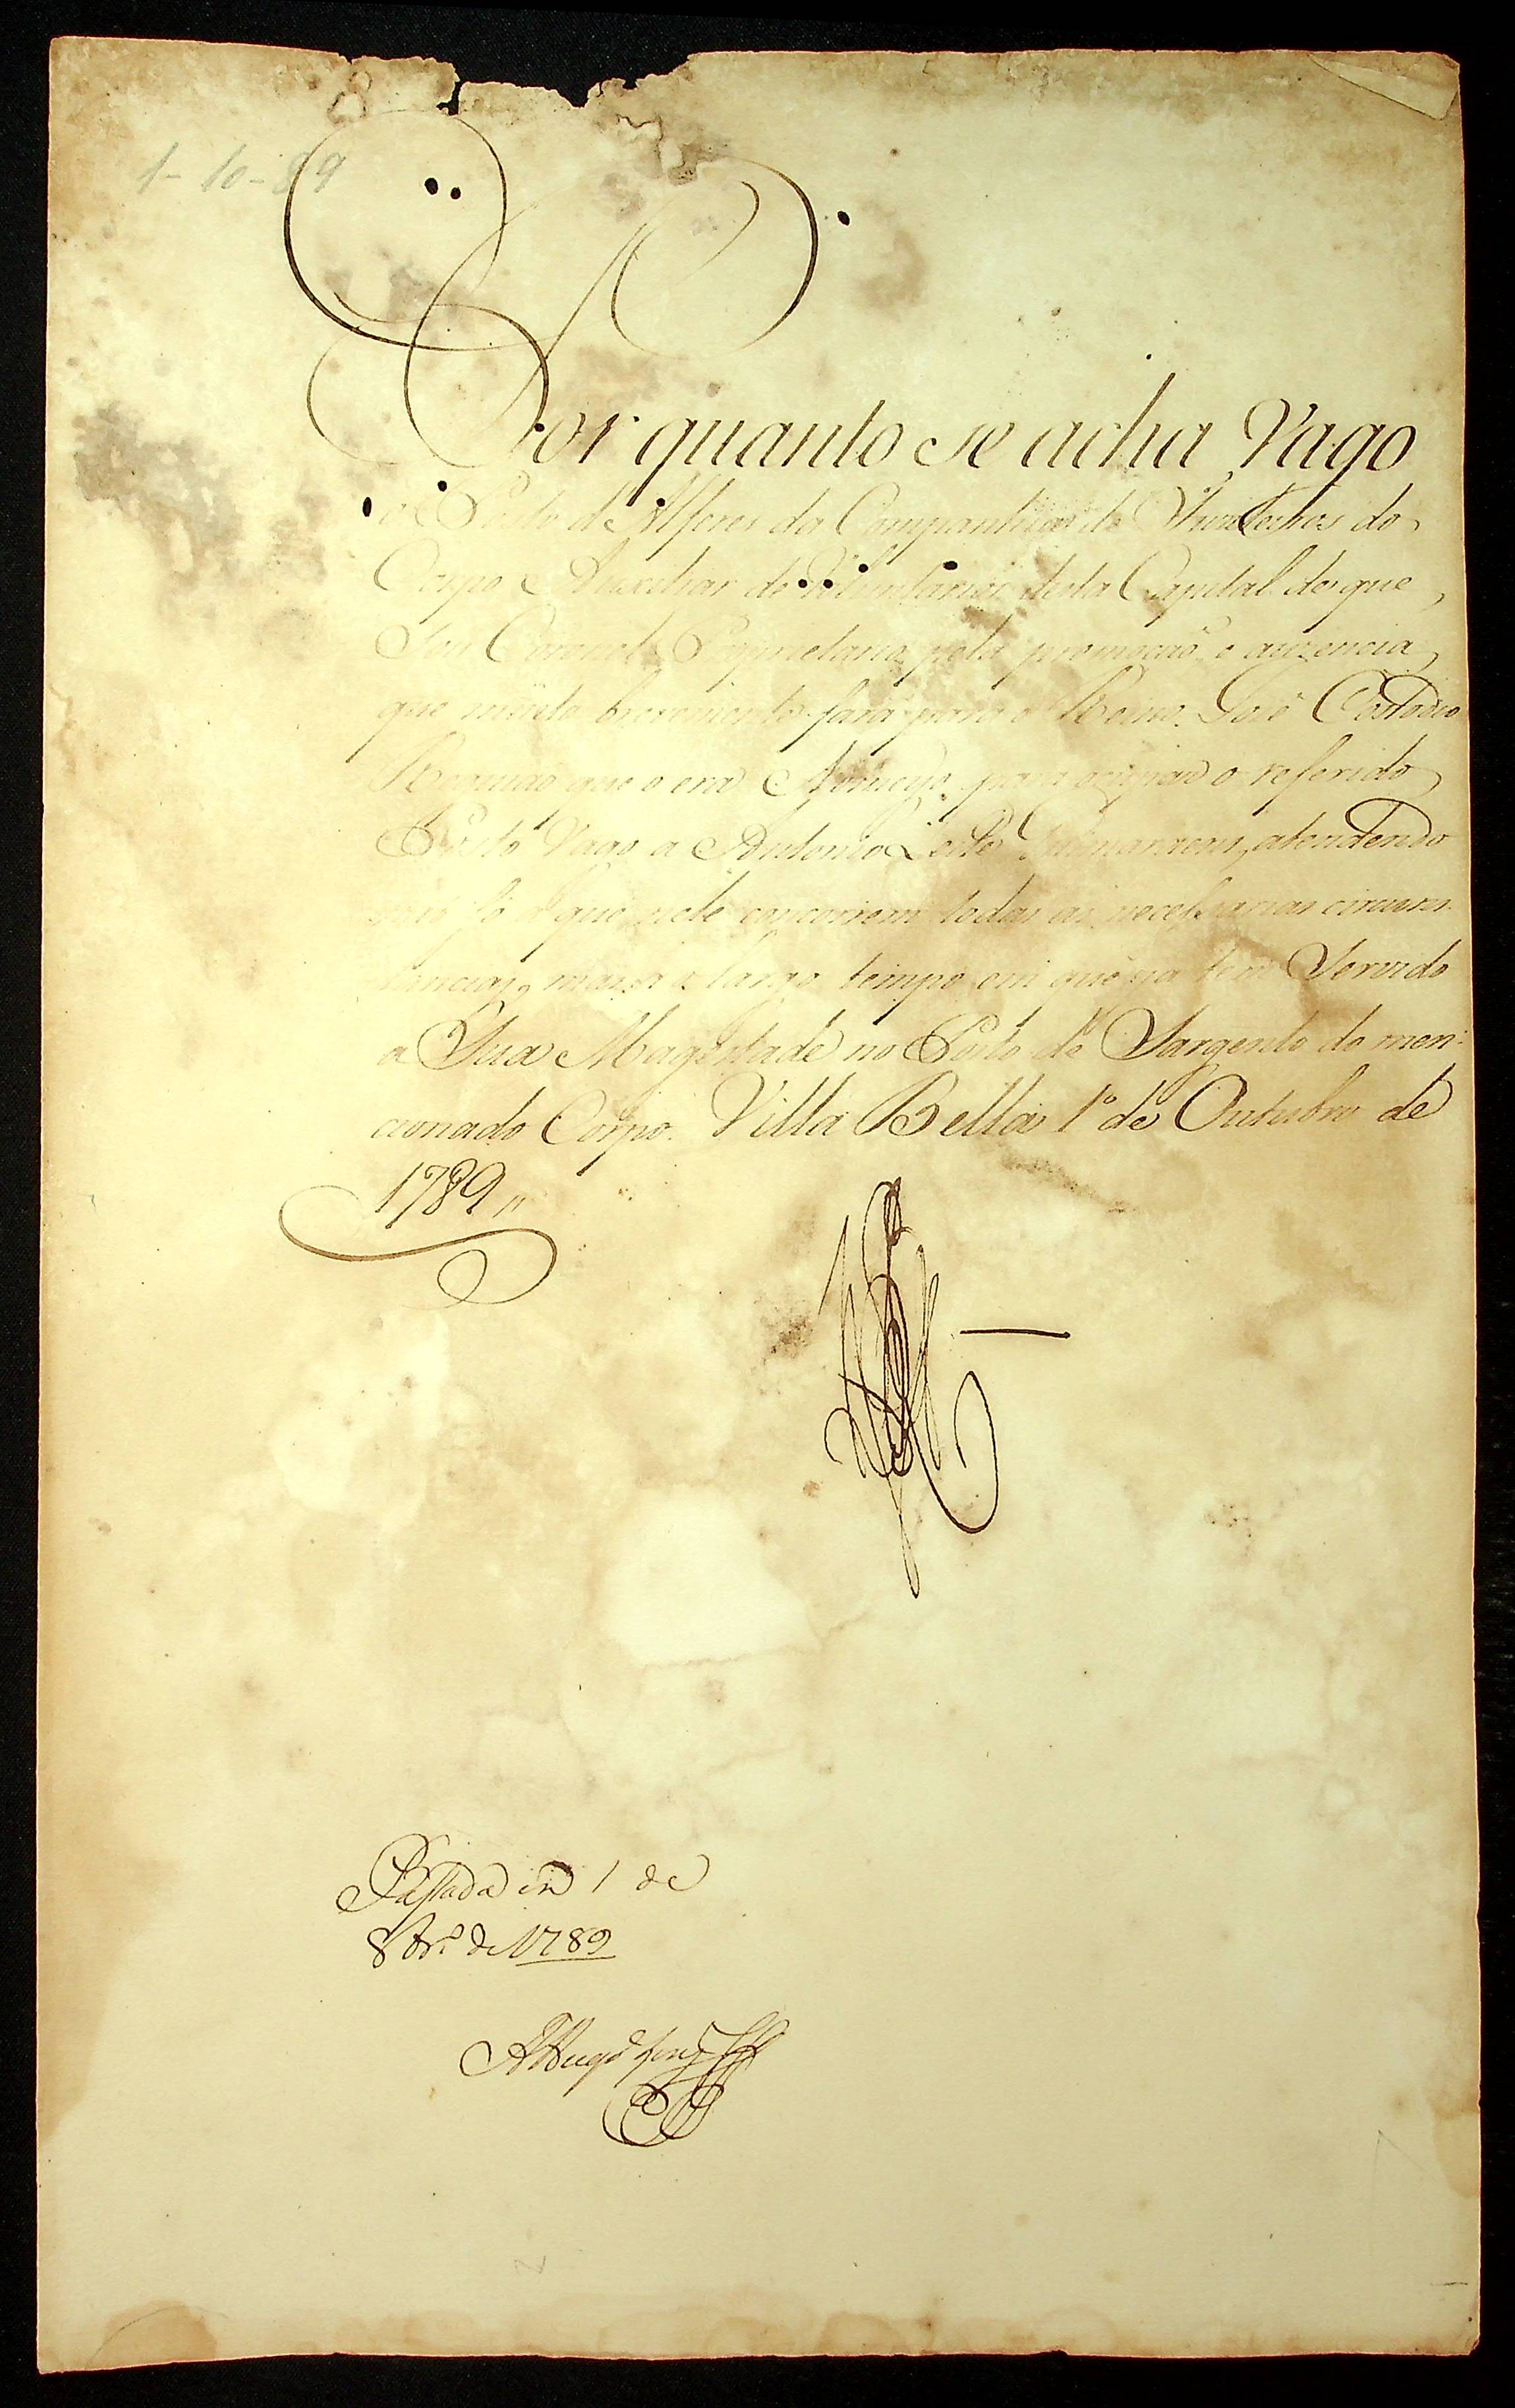 1-10-89
Por quanto se acha Vago
o Posto d'Alferes da Companhia de do
Corpo Auxiliar de Voluntarios desta Capital de que
Sou Coronel Proprietario pela promoção, e auzencia,
que muito brevemente fará para o Reino José Costodio
que o era Nomeyo para ocupar o referido
Posto Vago a Antonio Leite Guimaraens, atendendo
não só a que nele concorrem todas as necessarias circuns-
tancias, mas a largo tempo em que ja tem Servido
a Sua Magestade no Posto de Sargento do men-
cionado Corpo. Villa Bella 1º de Outubro de
1789,,
Passada em 1 de
8br.º de 1789